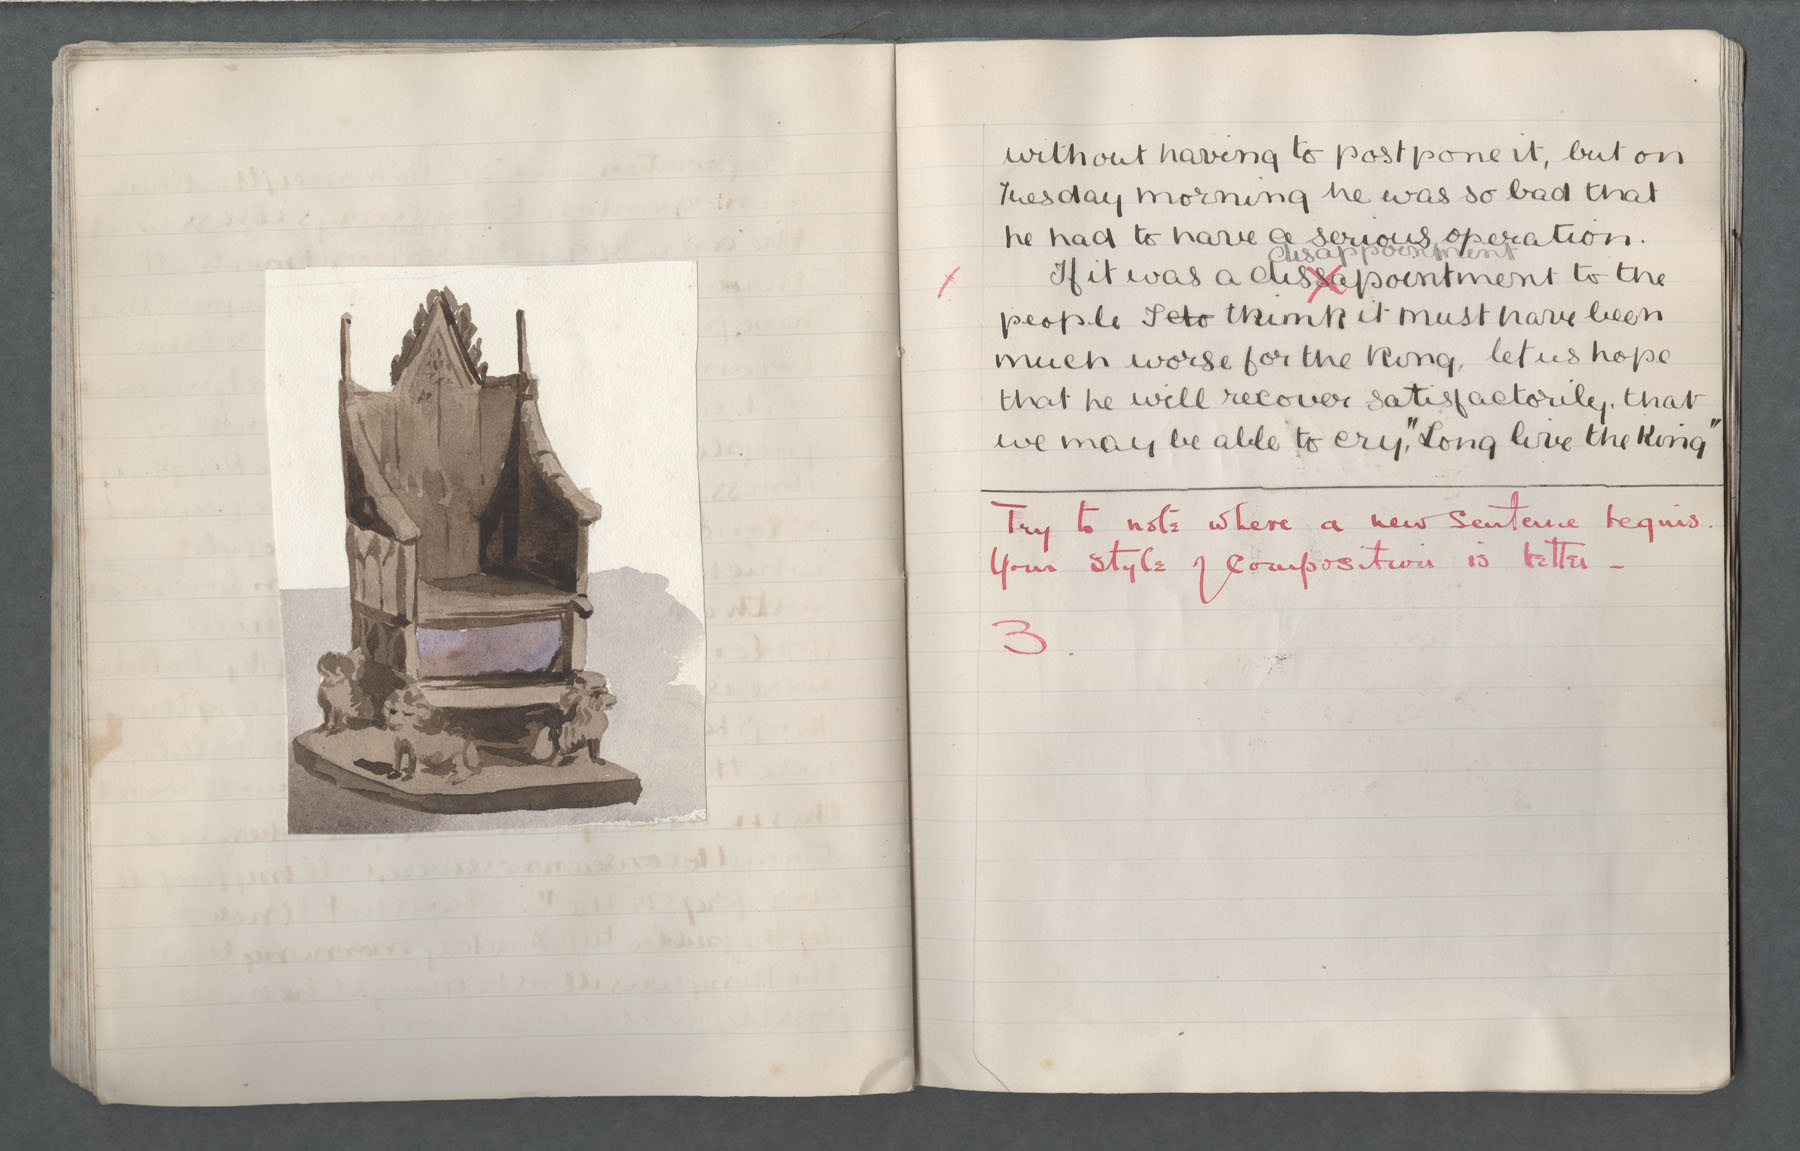 without having to postpone it, but on
Tuesday morning he was so bad that
he had to have a serious operation.
disappointment
If it was a dissapointment to the
people I eto think it must have been
much worse for the King, let us hope
that he will recover satisfactorily, that
we may be able to cry, "Long live the King"
Try to note where a new sentence begins.
Your style of composition is better –
3.